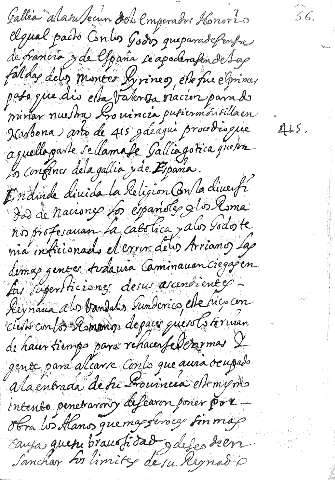 Gallia a la su secun dolo Emperador Honorio
el qual pacto con los Godos que para defensa
de francia y de España se apoderasen de las
faldas de los montes Pyrineos, este fue el primer
paso que dio esta valerosa nacion para do
minar nuestra Provincia pusieron su silla en
Narbona año de 415 y de aqui procedio que
aquella parte se llamase Gallia gotica questa
los confines de la gallia y de España.
En dinde divida la Religion con la diversi
dad de Naciones los españoles, y los Roma
nos profesavan la catolica y a los Godos te
nia inficionado el error de los Arrianos las
demas gentes todavia Caminavan ciegas en
las supersticiones de sus ascendientes
Reynava a los Vandalos Gunderico, este hiço con
cierto con los Romanos de paces que solo servian
de hacer tiempo para rehacerse de armas y
gente para alçarse con lo que avia ocupado
a la entrada de su Provincia este mismo
intento penetraron y desearon poner por
obra los Alanos que mas feroces sin mas
causa que su bravosidad y deseo de en
sanchar los limites de su Reynado
56.
415.